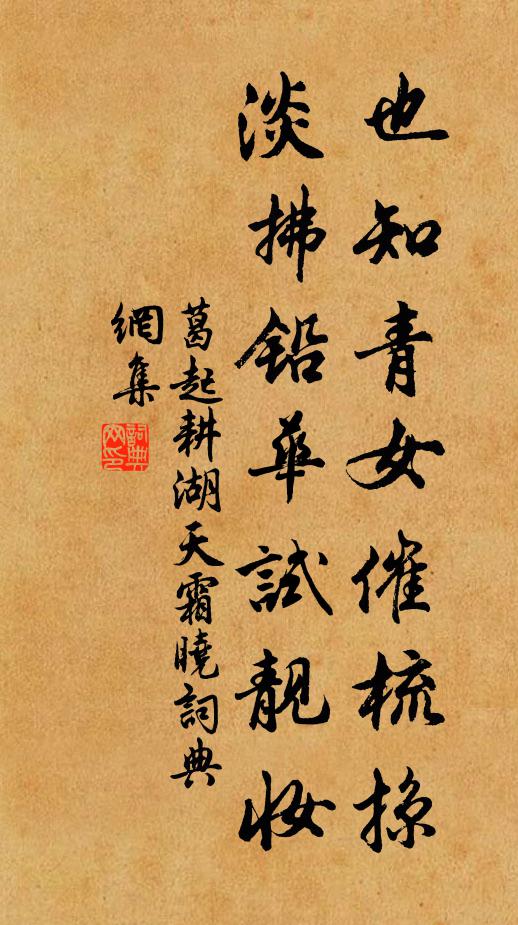 也知青女催梳掠
淡拂鉛華試靚妝
葛起耕湖天霜曉詞典
網集
詞典網印